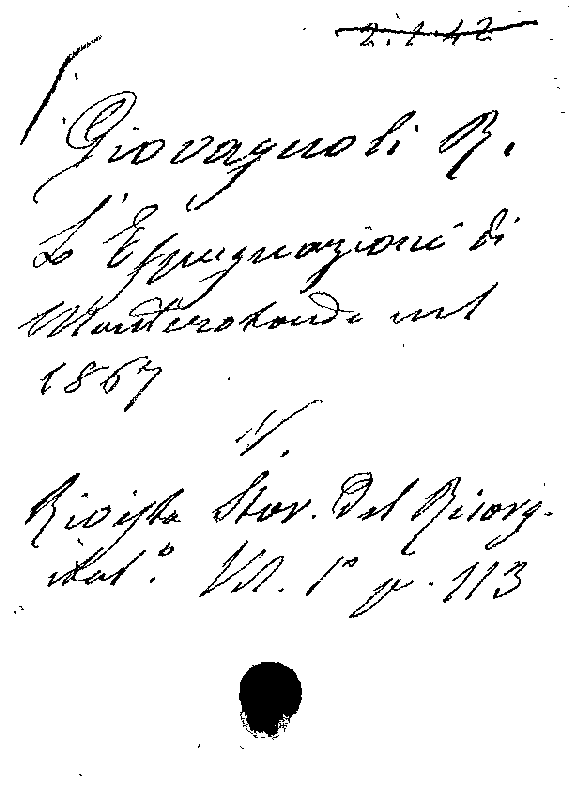 2.1.42
Giovagnoli R.
L'Espugnazione di
Monterotondo nel
1867
V.
Rivista Stor. del Risorg.
ital.º Vol. 1º p. 113